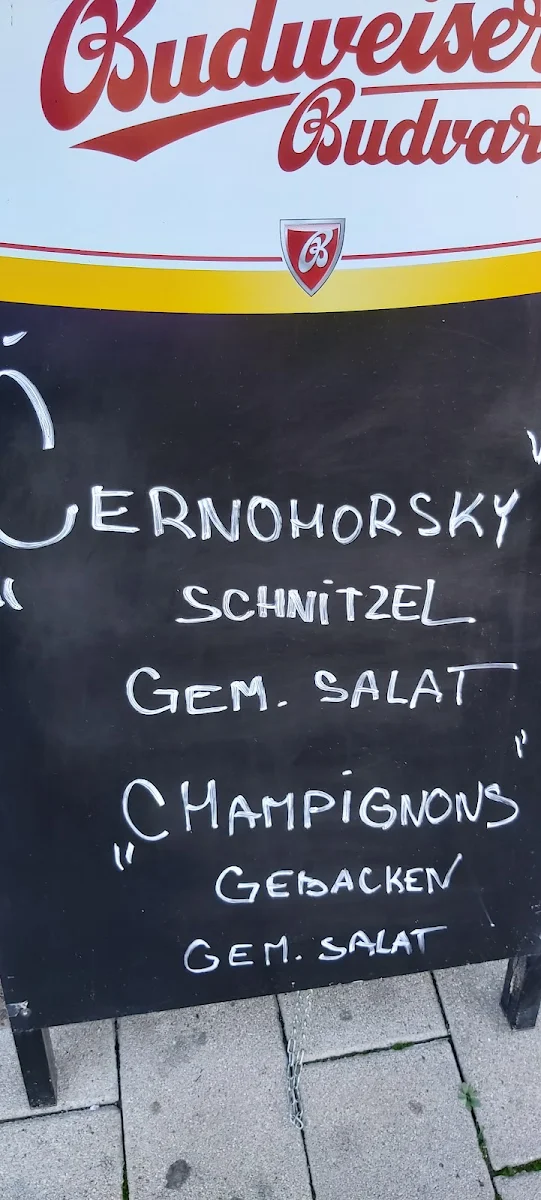 Budweiser
Budvar
B
ČERNOHORSKY
SCHNiTZEL
GEM. SALAT
"CHAMPiGNONS"
GEBACKEN
GEM. SALAT